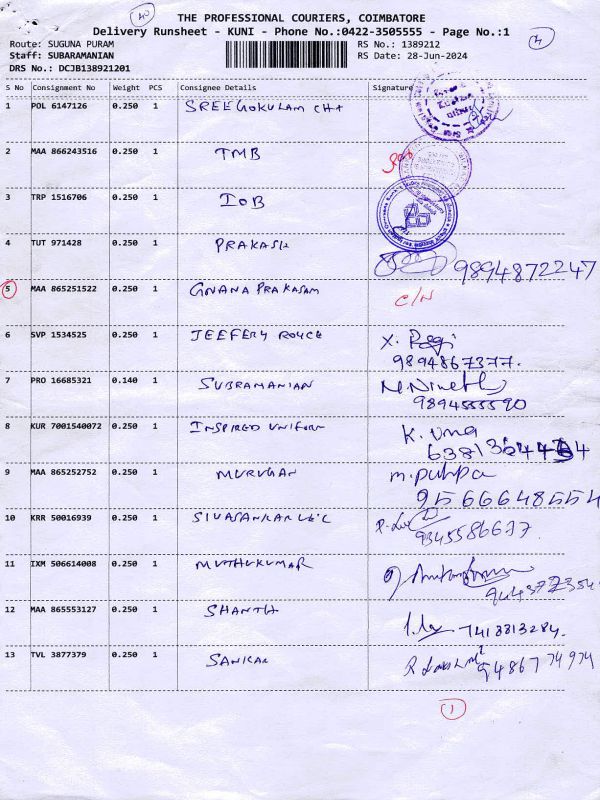 40
THE PROFESSIONAL COURIERS, COIMBATORE
Delivery Runsheet - KUNI - Phone No.:0422-3505555 - Page No.:1
Route: SUGUNA PURAM RS No.: 1389212
Staff: SUBARAMANIAN RS Date: 28-Jun-2024
DRS No.: DCJB138921201
S No Consignment No Weight PCS Consignee Details Signature
1 POL 6147126 0.250 1 SREEGOKULAM CHT
2 MAA 866243516 0.250 1 TMB
3 TRP 1516706 0.250 1 IOB
4 TUT 971428 0.250 1 PRAKASH 9894872247
5 MAA 865251522 0.250 1 GNANA PRAKASAM C/N
6 SVP 1534525 0.250 1 JEEFERY ROYCE X. Regi
9894867377.
7 PRO 16685321 0.140 1 SUBRAMANIAN
9894555590
8 KUR 7001540072 0.250 1 INSPIRED UNIFORM K. Uma
9 MAA 865252752 0.250 1 MURUGAN m. pushpa
9566648554
10 KRR 50016939 0.250 1
9345586677.
11 IXM 506614008 0.250 1 MUTHUKUMAR
12 MAA 865553127 0.250 1 SHANTH 7413813284.
13 TVL 3877379 0.250 1 SANKAR
1